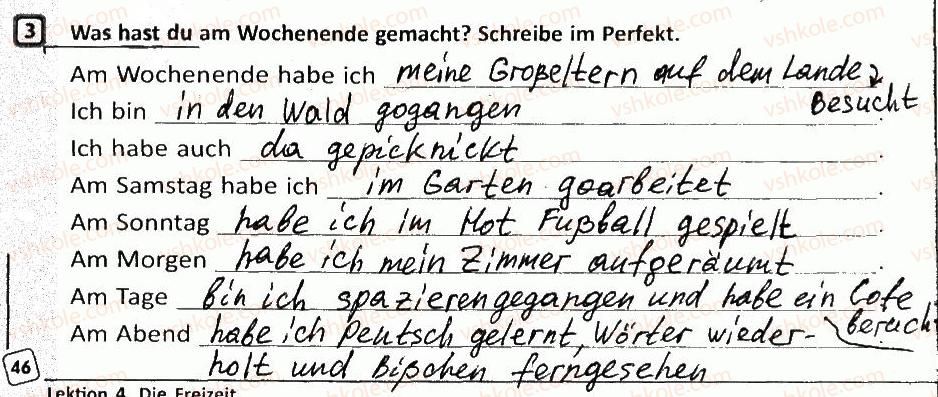 3 Was hast du am Wochenende gemacht? Schreibe im Perfekt.
Am Wochenende habe ich meine Großeltern auf dem Lande
besucht
Ich bin in den Wald gogangen.
Ich habe auch da gepicknickt.
Am Samstag habe ich im Garten goarbeitet.
Am Sonntag habe ich im Hot Fußball gespielt.
Am Morgen habe ich mein Zimmer aufgeräumt.
Am Tage bin ich spazierengegangen und habe ein Cofe
besucht
Am Abend habe ich Deutsch gelernt, Wörter wieder-
holt und Bißchen ferngesehen
46
Lektion 4. Die Freizeit
vshkole.com